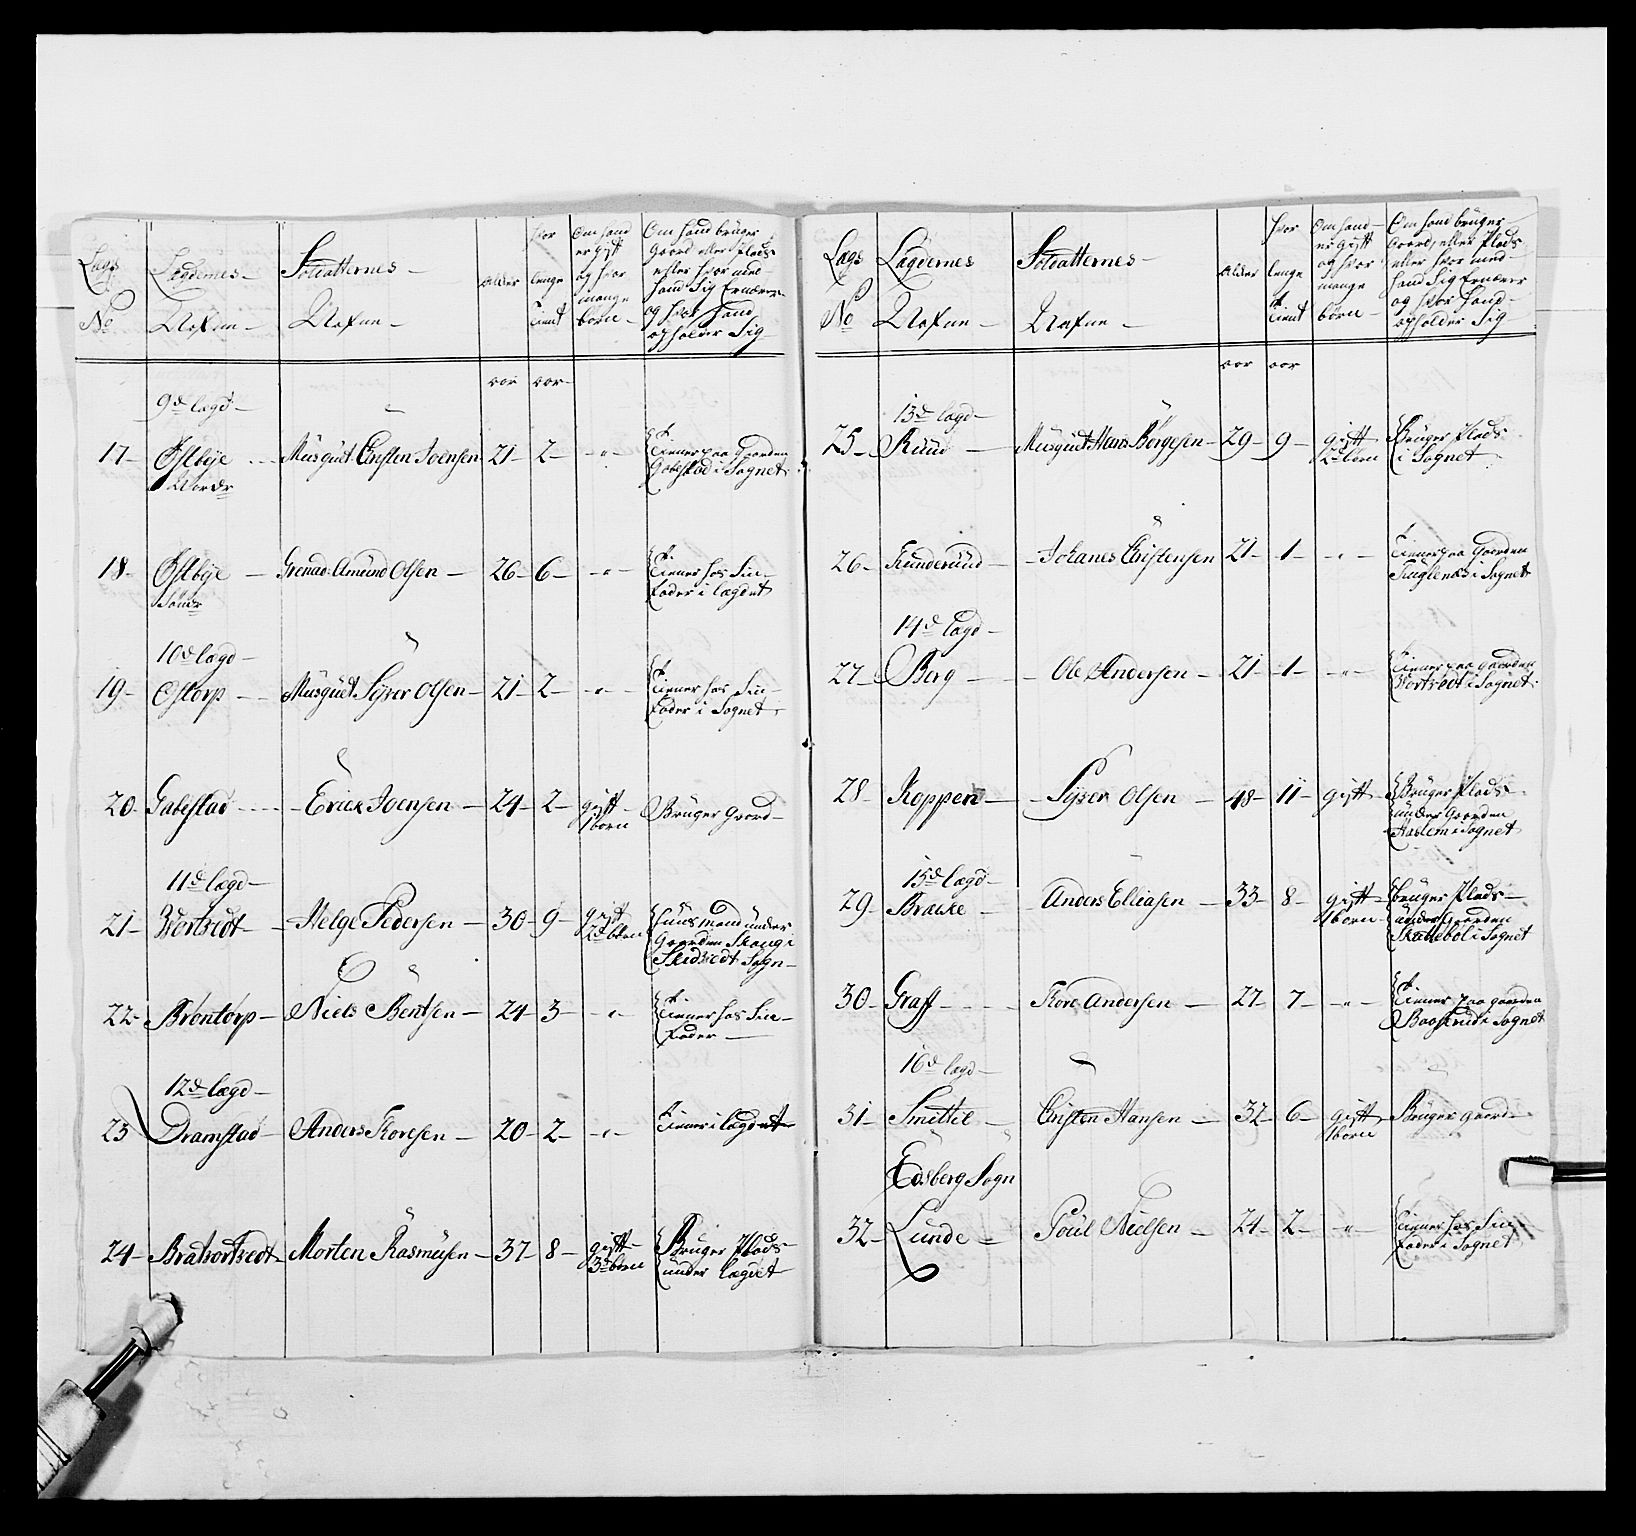 Lægs
No
Lægdernes
Nafne
Soldatternes
Nafne
alder
hvor
lenge
tient
Om hand
er gift
og hvor
mange
børn
Om hand bruger
Gaard eller Plads
eller hvor med
hand Sig Ernærer
og hvor hand
opholder Sig
aar aar
9d lægd
17 Østbye Musqut Cristen Joensen 21 2 "
Nordr
Tienner paa Gaarden
Gabestad i Sognet
18 Østbye Grenad Amund Olsen 26 6 "
Søndr
Tienner hos Sin
Fader i lægdet
10d lægd
19 Ostorp Musqut Syver Olsen 21 2 "
Tienner hos Sin
Fader i Sognet
20 Gabestad Erick Joensen 24 2 gift
1 børn
Bruger Gaard
11d lægd
21 Helge Pedersen 30 9 gift
2d børn
Huusmand under
Gaarden Skaug i
Sogn
22 Brøntorp Niels Bentsen 24 3 "
Tienner hos Sin
Fader
12d lægd
23 Dramstad Anders Toresen 20 2 "
Tienner i lægdet
24 Morten Rasmusen 37 8 gift
3d børn
Bruger Plads
under lægdet
Lægs
No
Lægdernes
Nafne
Soldatternes
Nafne
alder
hvor
lenge
tient
Om hand
er gift
og hvor
mange
børn
Om hand bruger
Gaard eller Plads
eller hvor med
hand Sig Ernærer
og hvor hand
opholder Sig
aar aar
13d lægd
25 Ruud Musqut Hans Børgesen 29 9 gift
2d børn
Bruger Plads
i Sognet
26 Johanes Cristensen 21 1 "
Tienner paa Gaarden
i Sognet
14d lægd
27 Berg Ole Andersen 21 1 "
Tienner paa Gaarden
i Sognet
28 Koppen Syver Olsen 48 11 gift
Bruger Plads
under Gaarden
Haslem i Sognet
15d lægd
29 Anders Elieasen 33 8 gift
1 børn
bruger Plads
under Gaarden
i Sognet
30 Graff Tore Andersen 27 7 "
Tienner paa gaarden
i Sognet
16d lægd
31 Cristen Hansen 32 6 gift
1 børn
Bruger gaard
Edsberg Sogn
32 Lunde Poul Nielsen 24 2 "
Tienner hos Sin
Fader i Sognet